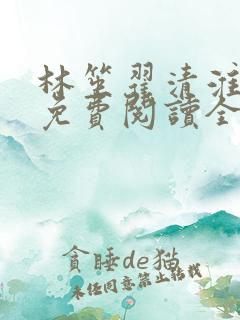 林笙翟清淮
免費閱讀全
貪睡de猫
未任同意禁止转载